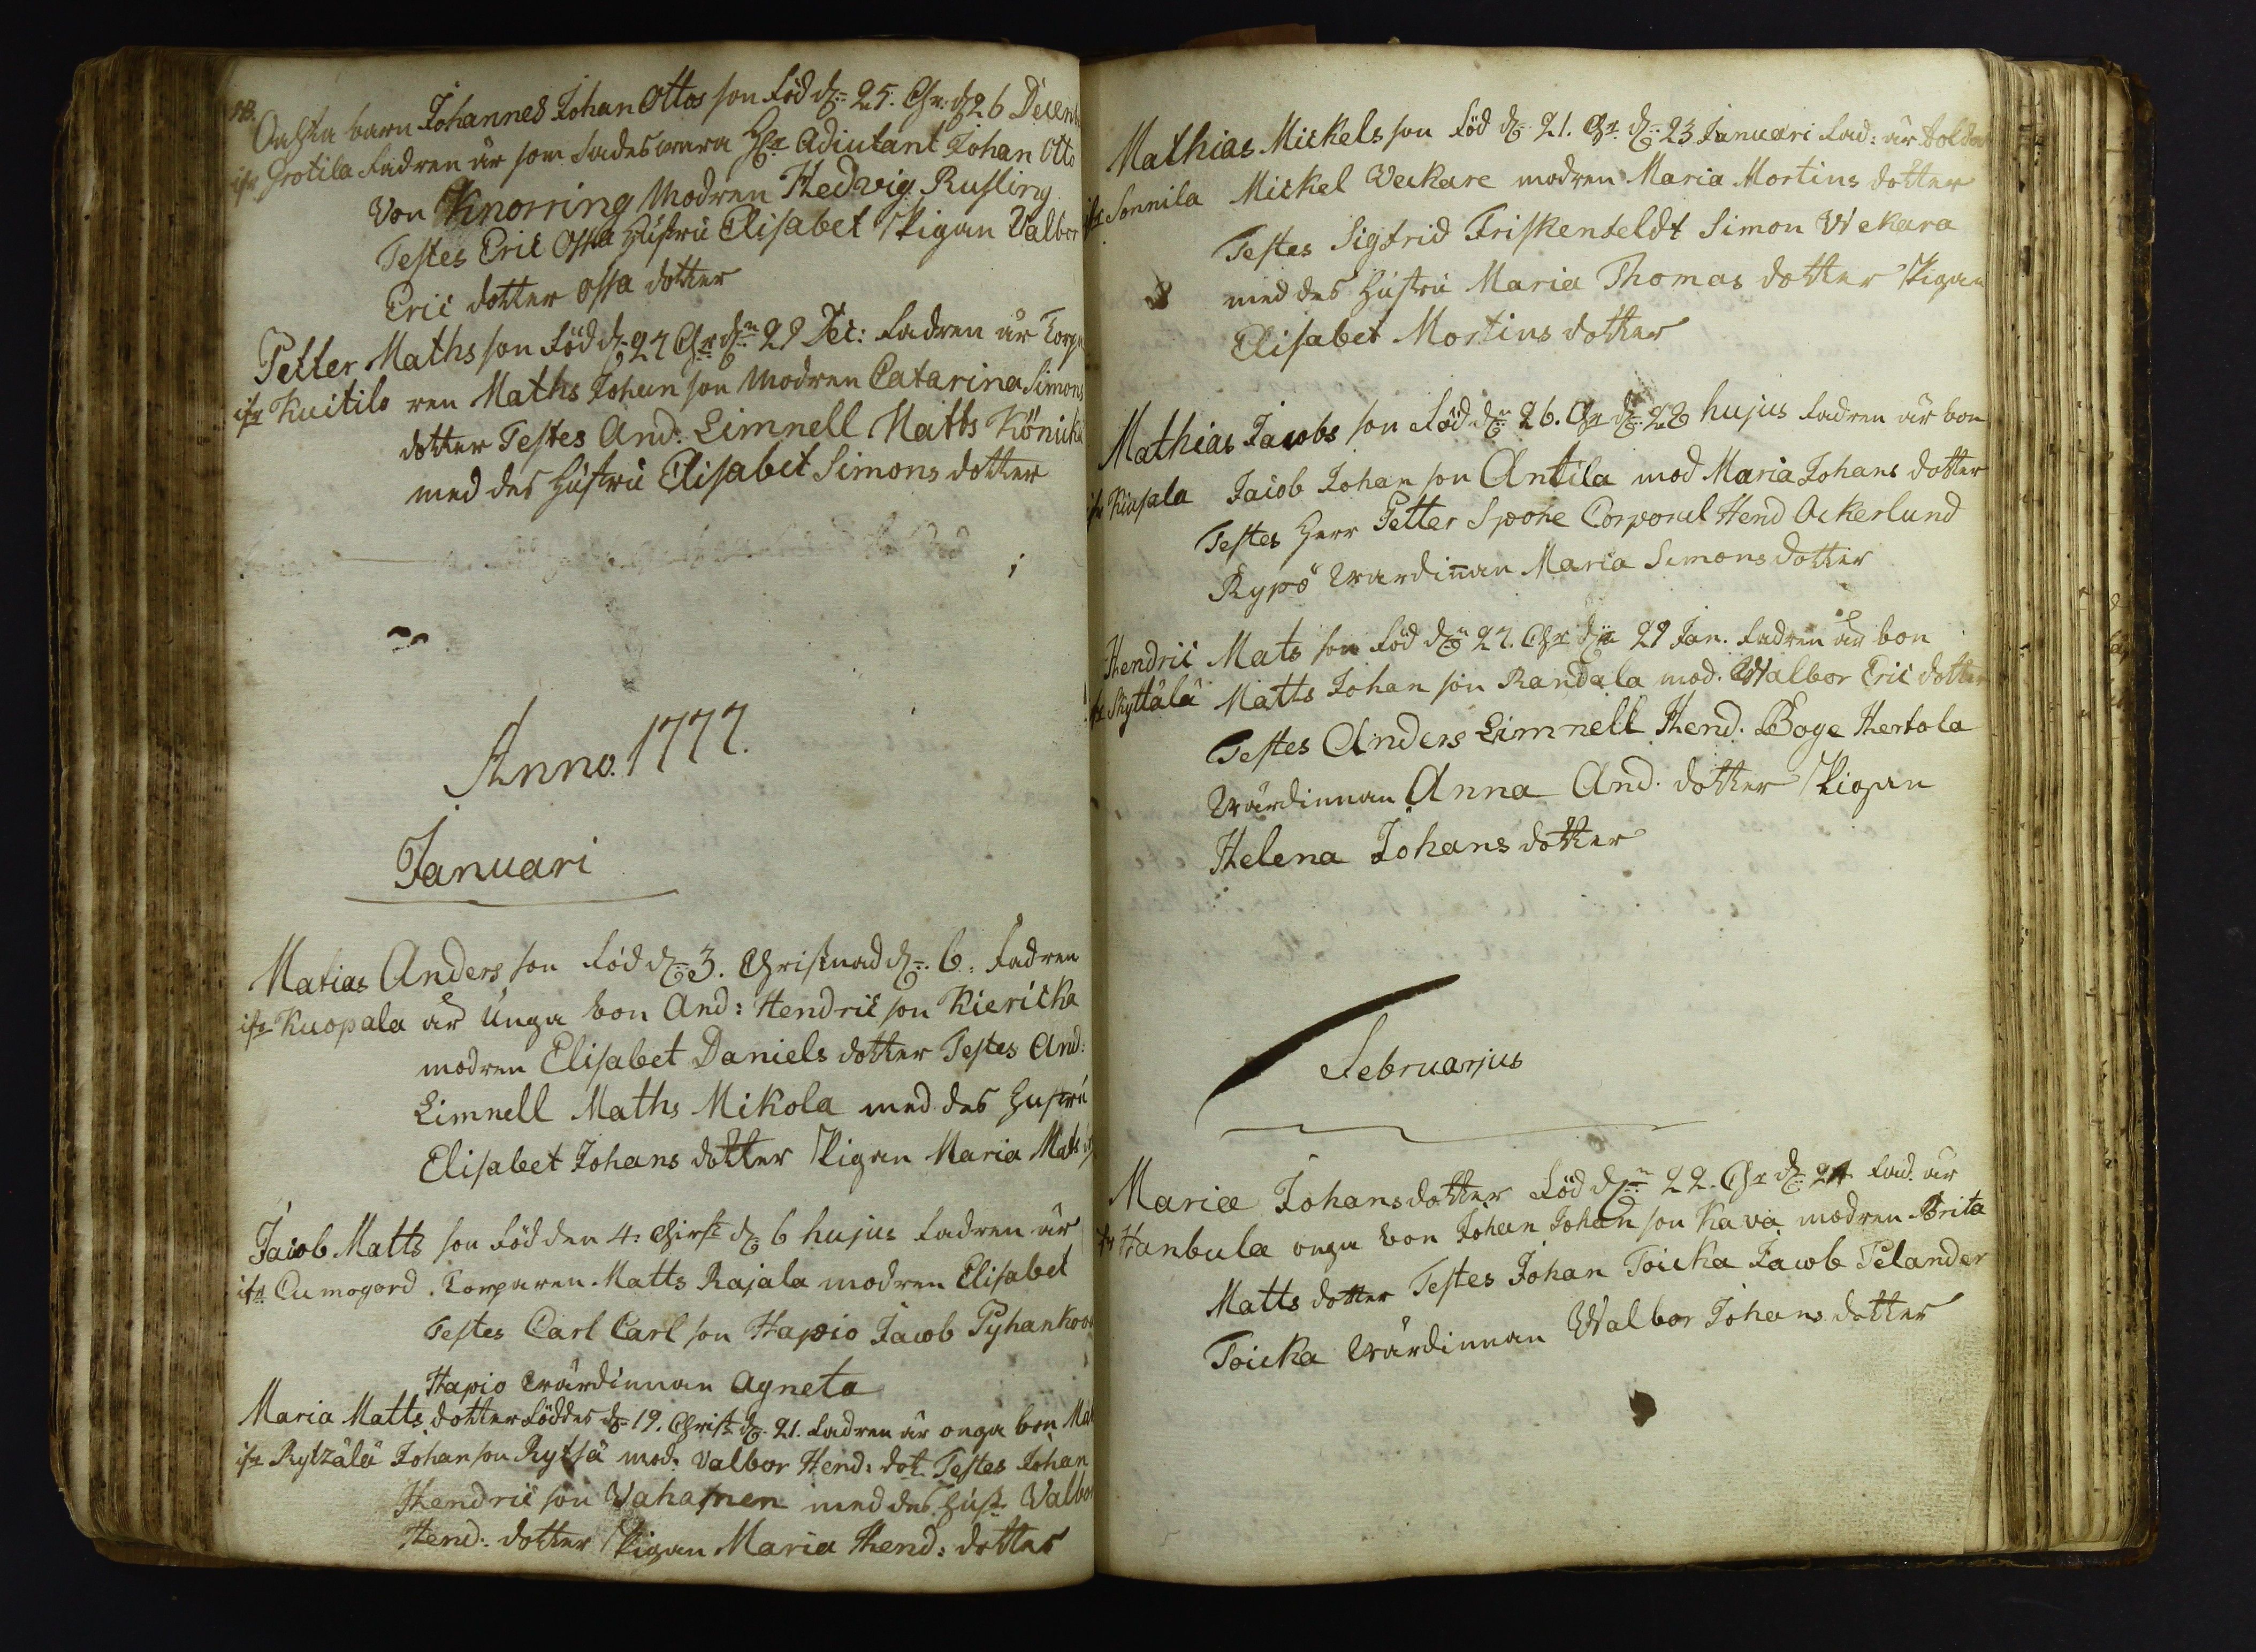 NB.
Oächta barn Johannes Johan Ottos son född d: 25. Chr: d 26 Decemb
ifr Grotila Fadren är som sades wara Hr Adiutant Johan Otto
Von Knorring Modren Hedvig Rusling
Testes Eric Ossa Hustru Elisabet Pigan Valbor
Eric dotter Ossa dotter
Petter Maths son född d: 27 Chr dn 29 Dec: Fadren är Torpa
ifr Kuitila ren Maths Johan son Modren Catarina Simons
dotter Testes And: Limnell Matts Könicke
med des Hustru Elisabet Simons dotter
Anno. 1777.
Januari
Matias Anders son född d: 3. Christnad d: 6: Fadren
ifr Kuopala är Unga bon And: Hendric son Kiericka
modren Elisabet Daniels dotter Testes And:
Limnell Maths Mikola med des Hustru
Elisabet Johans dotter Pigan Maria Mats
Jacob Matts son född den 4: Chirst d: 6 hujus Fadren är
ifr Cumogord Torparen Matts Rajala modren Elisabet
Testes Carl Carl son Hapio Jacob Pyhankoo
Hapio Wärdinnan Agneta
Maria Matts dotter föddes d: 19. Christ d: 21. Fadren är onga bon Mat
ifr Rytzälä Johan son Rytsä mod: Valbor Hend: dot. Testes Johan
Hendric son Vahamen med des Hust: Valbor
Hend: dotter Pigan Maria Hend: dotter
Mathias Mickels son född d: 21. Chr. d: 23 Januari Fad: är Soldat
ifr Sonnila Mickel Veckare modren Maria Mortins dotter
Testes Sigfrid Friskenfeldt Simon Wekara
med des Hustru Maria Thomas dotter Pigan
Elisabet Mortins dotter
Mathias Jacobs son född dn 26. Chr d: 28 hujus Fadren är bon
ifr Kiusala Jacob Johan son Antila mod Maria Johans dotter
Testes Herr Petter Spohe Corporal Hend Ackerlund
Rypö Wardinnan Maria Simons dotter
Hendric Mats son född dn 27. Chr dn 29 Jan. Fadren är bon
ifr Skyttälä Matts Johan son Randala mod. Walbor Eric dotter
Testes Anders Limnell Hend. Boge Hertola
Wärdinnan Anna And. dotter Pigan
Helena Johans dotter
Februarjus
Maria Johansdotter född dn 22. Chr d: 24 Fad. är
ifr Hanbula onga bon Johan Johan son Kava modren Brita
Matts dotter Testes Johan Toicka Jacob Pelander
Toicka Wärdinnan Walbor Johans dotter